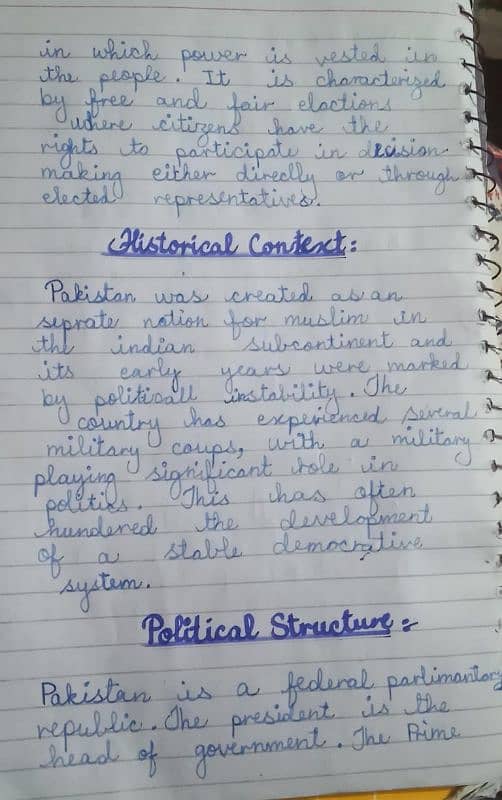 in which power is vested in
the people. It is characterized
by free and fair elections
where citizens have the
rights to participate in decision
making either directly or through
elected representatives.
Historical Context:
Pakistan was created as an
seprate nation for muslim in
the indian subcontinent and
its early years were marked
by politicall instability. The
country has experienced several
military coups, with a military
playing significant role in
politics. This has often
hundered the development
of a stable democrative
system.
Political Structure:-
Pakistan is a federal parlimantory
republic. The president is the
head of government. The Prime